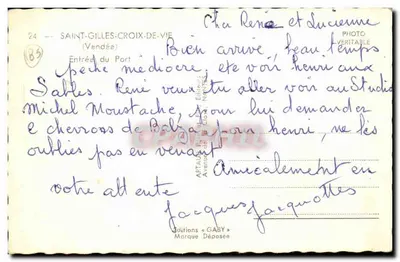 Cher René et Lucienne
24 - SAINT-GILLES-CROIX-DE-VIE
(Vendée)
Entrée du Port
PHOTO
VERITABLE
Bien arrivé, beau temps
pêche médiocre, été voir henri aux
Sables. René veux tu aller voir au Studio
Michel Moustache, pour lui demander
chevross de pour henri, ne les
oublies pas en venant
Amicalement en
votre attente
Jacques Jacquottes
Editions « GABY »
Marque Déposée